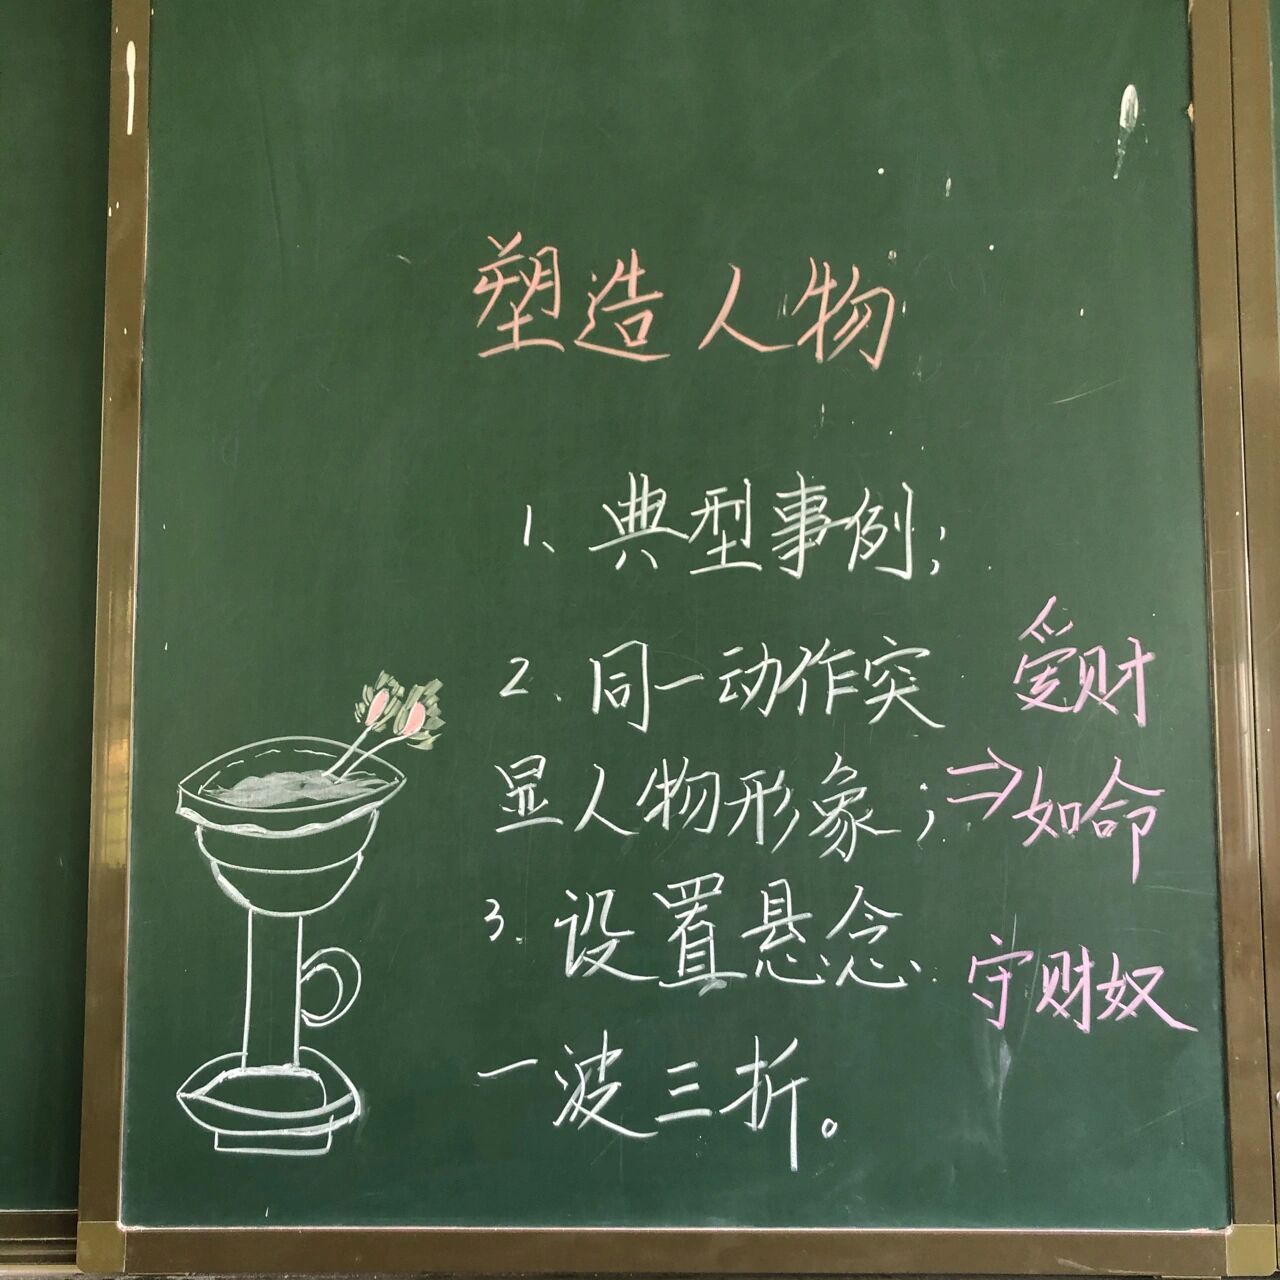 塑造人物
1、典型事例；
2、同一动作突
显人物形象；⇒
爱财
如命
3、设置悬念
守财奴
一波三折。